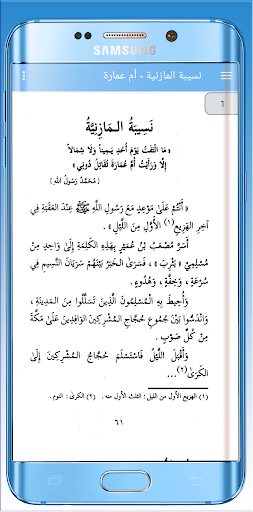 SAMSUNG
نسيبة المازنية - أم عمارة
1
نَسِيبَةُ الـمَازِنِيَّةُ
« مَا الْتَفَتُّ يَوْمَ أُحُدٍ يَمِيناً وَلَا شِمَالاً
إِلَّا وَرَأَيْتُ أُمَّ عُمَارَةَ تُقَاتِلُ دُونِي »
[ مُحَمَّدٌ رَسُولُ اللهِ ]
« أَنْتُمْ عَلَى مَوْعِدٍ مَعَ رَسُولِ اللَّهِ ﷺ عِنْدَ العَقَبَةِ فِي
آخِرِ الهَزِيعِ(١) الأَوَّلِ مِنَ اللَّيْلِ » .
أَسَرَّ مُصْعَبُ بْنُ عُمَيْرٍ بِهَذِهِ الكَلِمَةِ إِلَى وَاحِدٍ مِنْ
مُسْلِمِيْ « يَثْرِبَ » ، فَسَرَى الخَبَرُ بَيْنَهُمْ سَرَيَانَ النَّسِيمِ فِي
سُرْعَةٍ ، وَخِفَّةٍ ، وَهُدُوءٍ .
وَأُحِيطَ بِهِ الْمُسْلِمُونَ الَّذِينَ تَسَلَّلُوا مِنَ المَدِينَةِ ،
وَانْدَسُّوا بَيْنَ جُمُوعِ حُجَّاجِ المُشْرِكِينَ الوَافِدِينَ عَلَى مَكَّةَ
مِنْ كُلِّ صَوْبٍ .
وَأَقْبَلَ اللَّيْلُ فَاسْتَسْلَمَ حُجَّاجُ المُشْرِكِينَ إِلَى
الكَرَىٰ(٢)...
(١) الهزيع الأول من الليل : الثلث الأول منه . (٢) الكرىٰ : النوم .
٦١